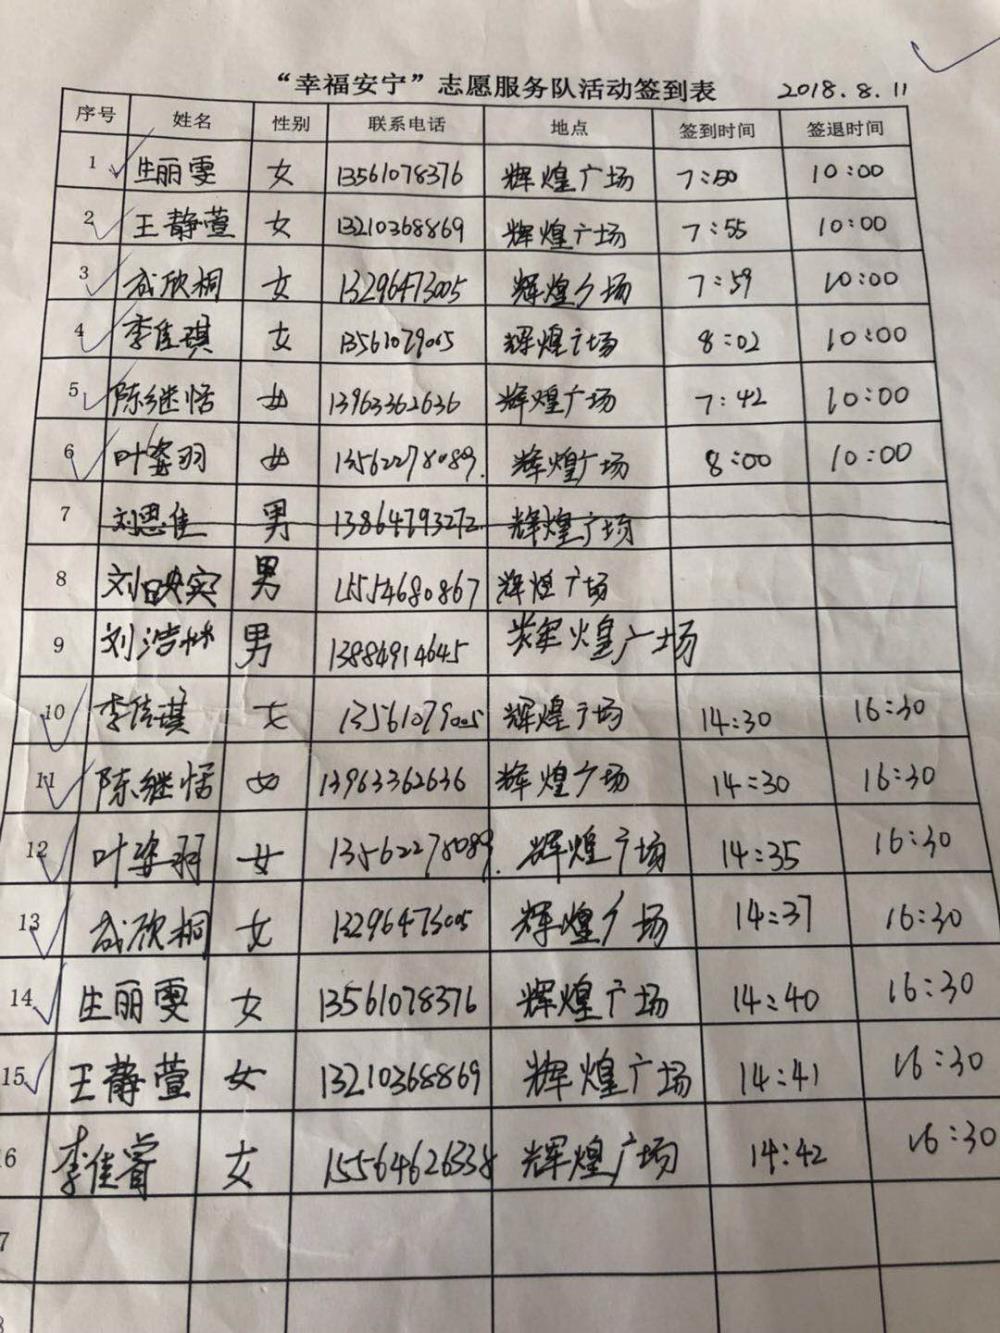 “幸福安宁”志愿服务队活动签到表 2018.8.11
序号 姓名 性别 联系电话 地点 签到时间 签退时间
1 生丽雯 女 13561078376 辉煌广场 7:50 10:00
2 王静萱 女 13210368869 辉煌广场 7:55 10:00
3 成欣桐 女 13296473005 辉煌广场 7:59 10:00
4 李佳琪 女 13561079005 辉煌广场 8:02 10:00
5 陈继恬 女 13963362636 辉煌广场 7:42 10:00
6 叶姿羽 女 13562278089. 辉煌广场 8:00 10:00
7 刘思佳 男 13864793272 辉煌广场
8 刘映实 男 15554680867 辉煌广场
9 刘浩林 男 13884914645 辉煌广场
10 李佳琪 女 13561079005 辉煌广场 14:30 16:30
11 陈继恬 女 13963362636 辉煌广场 14:30 16:30
12 叶姿羽 女 13562278089. 辉煌广场 14:35 16:30
13 成欣桐 女 13296473005 辉煌广场 14:37 16:30
14 生丽雯 女 13561078376 辉煌广场 14:40 16:30
15 王静萱 女 13210368869 辉煌广场 14:41 16:30
6 李佳睿 女 15564626338 辉煌广场 14:42 16:30
7
8